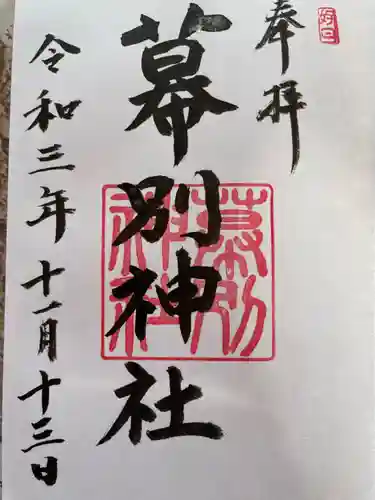 奉拝
幕別神社
幕別
神社
令和三年十一月十三日